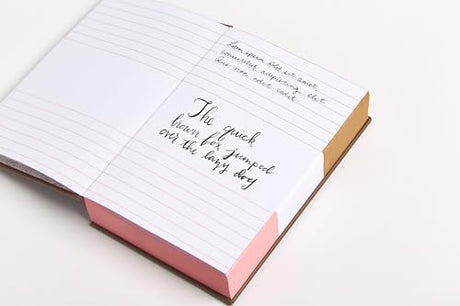 Lorem ipsum dolor sit amet,
consectetur adipiscing elit
Duis non odit
The quick
brown fox jumped
over the lazy dog